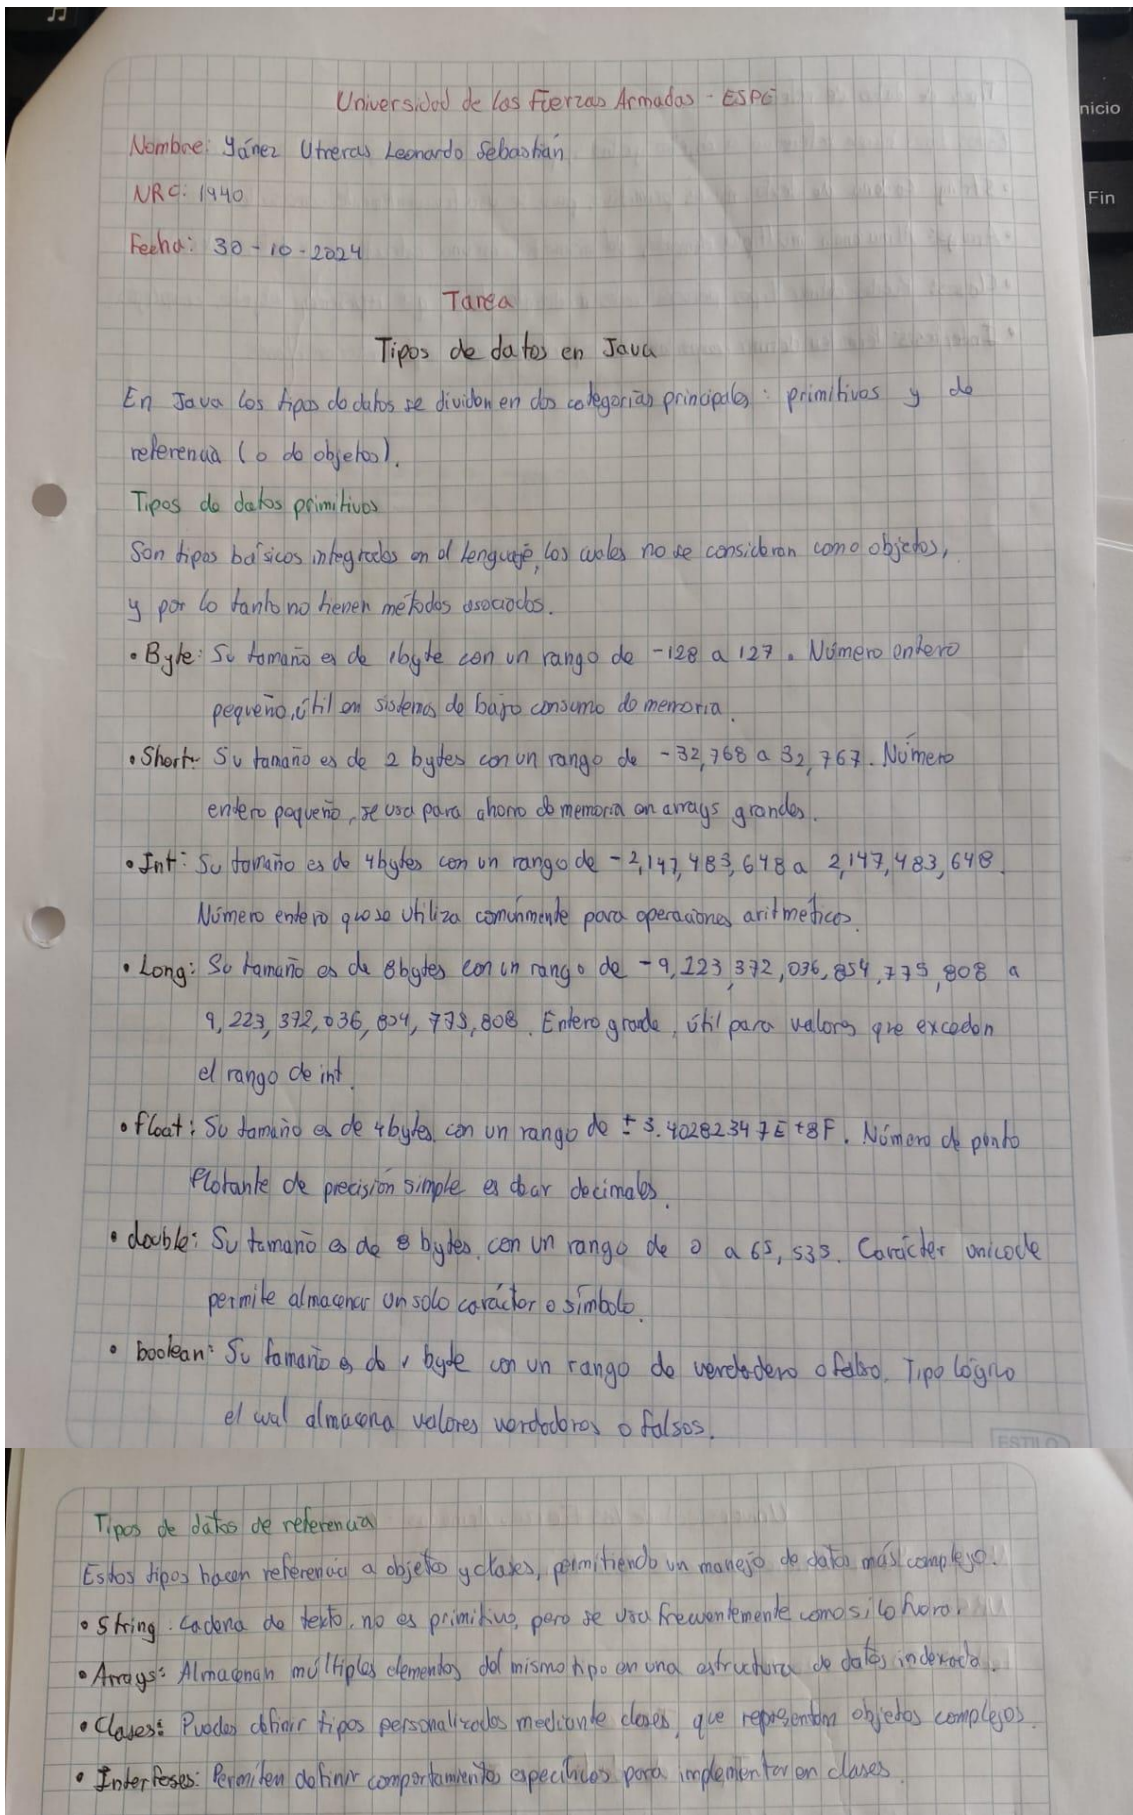 Inicio
Fin
Universidad de las Fuerzas Armadas - ESPE
Nombre: Yánez Utreras Leonardo Sebastián
NRC: 1940
Fecha: 30-10-2024
Tarea
Tipos de datos en Java
En Java los tipos de datos se dividen en dos categorías principales: primitivos y de
referencia (o de objetos).
Tipos de datos primitivos
Son tipos básicos integrados en el lenguaje, los cuales no se consideran como objetos,
y por lo tanto no tienen métodos asociados.
• Byte: Su tamaño es de 1byte con un rango de -128 a 127. Número entero
pequeño, útil en sistemas de bajo consumo de memoria.
• Short: Su tamaño es de 2 bytes con un rango de -32,768 a 32,767. Número
entero pequeño, se usa para ahorro de memoria en arrays grandes.
• Int: Su tamaño es de 4bytes con un rango de -2,147,483,648 a 2,147,483,648.
Número entero que se utiliza comúnmente para operaciones aritméticas.
• Long: Su tamaño es de 8bytes con un rango de -9,223,372,036,854,775,808 a
9,223,372,036,854,775,808. Entero grande, útil para valores que exceden
el rango de int.
• float: Su tamaño es de 4bytes, con un rango de ± 3.40282347E+8F. Número de punto
flotante de precisión simple es decir decimales.
• double: Su tamaño es de 8 bytes, con un rango de 0 a 65,535. Carácter unicode
permite almacenar un solo carácter o símbolo.
• boolean: Su tamaño es de 1 byte con un rango de verdadero o falso. Tipo lógico
el cual almacena valores verdaderos o falsos.
ESTILO
Tipos de datos de referencia
Estos tipos hacen referencia a objetos y clases, permitiendo un manejo de datos más complejo.
• String: Cadena de texto, no es primitivo, pero se usa frecuentemente como si lo fuera.
• Arrays: Almacenan múltiples elementos del mismo tipo en una estructura de datos indexada.
• Clases: Puedes definir tipos personalizados mediante clases, que representan objetos complejos.
• Interfeses: Permiten definir comportamientos específicos para implementar en clases.